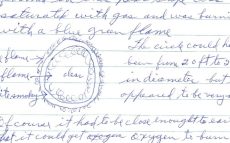 saturated with gas and was burni
with a blue green flame
The circle could ha
flame → been from 20 ft to 2
flame → clear in diameter but
smoky appeared to be very
Of course it had to be close enought to ear
that it could get oxogen oxygen to burn